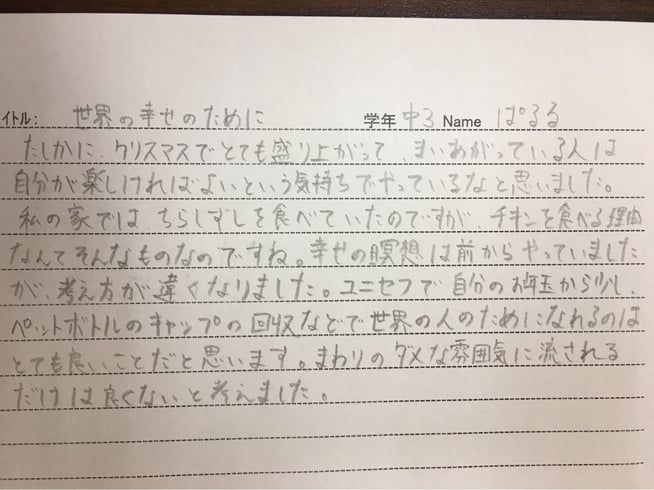 イトル: 世界の幸せのために 学年 中3 Name ぱるる
たしかに、クリスマスでとても盛り上がって、まいあがっている人は
自分が楽しければよいという気持ちでやっているなと思いました。
私の家では、ちらしずしを食べていたのですが チキンを食べる理由
なんてそんなものなのですね。幸せの瞑想は前からやっていました
が、考え方が違くなりました。ユニセフで自分のお年玉から少し、
ペットボトルのキャップの回収などで世界の人のためになれるのは
とても良いことだと思います。まわりのダメな雰囲気に流される
だけは良くないと考えました。